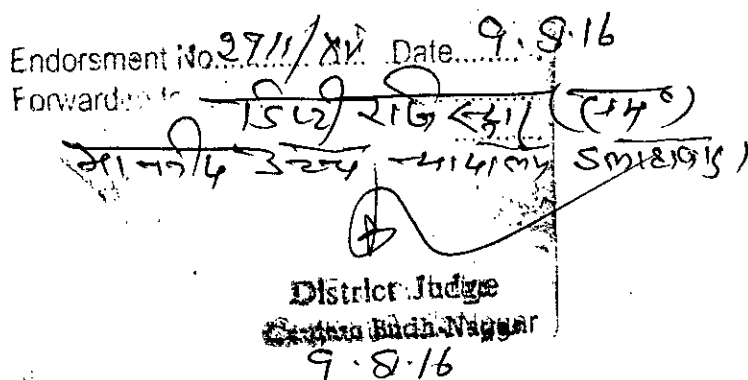 Endorsment No. 2711/XV Date 9.8.16
Forwarded to डिप्टी रजिस्ट्रार (एम०)
माननीय उच्च न्यायालय इलाहाबाद।
District Judge
Gautam Budh Naggar
9.8.16